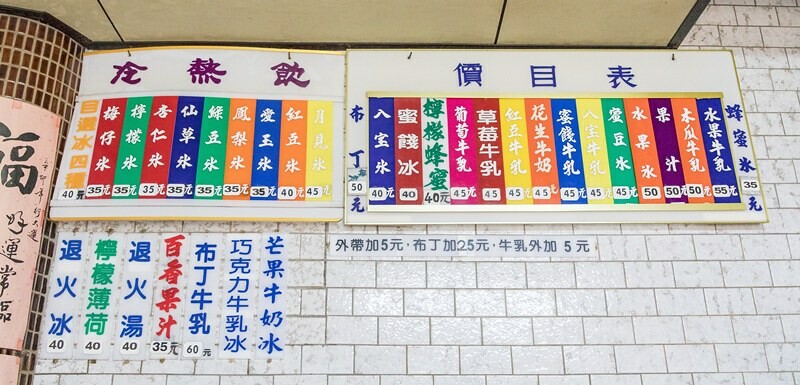 冷熱飲
自選冰四種 40元
梅仔冰 35元
檸檬冰 35元
杏仁冰 35元
仙草冰 35元
綠豆冰 35元
鳳梨冰 35元
愛玉冰 35元
紅豆冰 40元
月見冰 45元
價目表
布丁 50元
八宝冰 40元
蜜餞冰 40
檸檬蜂蜜 40元
葡萄牛乳 45
草莓牛乳 45
紅豆牛乳 45
花生牛奶 45
蜜餞牛乳 45元
八宝牛乳 45元
愛豆 45元
水果冰 50
果汁 50元
木瓜牛乳 50元
水果牛乳 55元
蜂蜜冰 35元
外帶加5元·布丁加25元·牛乳外加 5 元
退火冰 40
檸檬薄荷 40
退火湯 40
百香果汁 35元
布丁牛乳 60元
巧克力牛乳冰
芒果牛奶冰
福
好運常臨